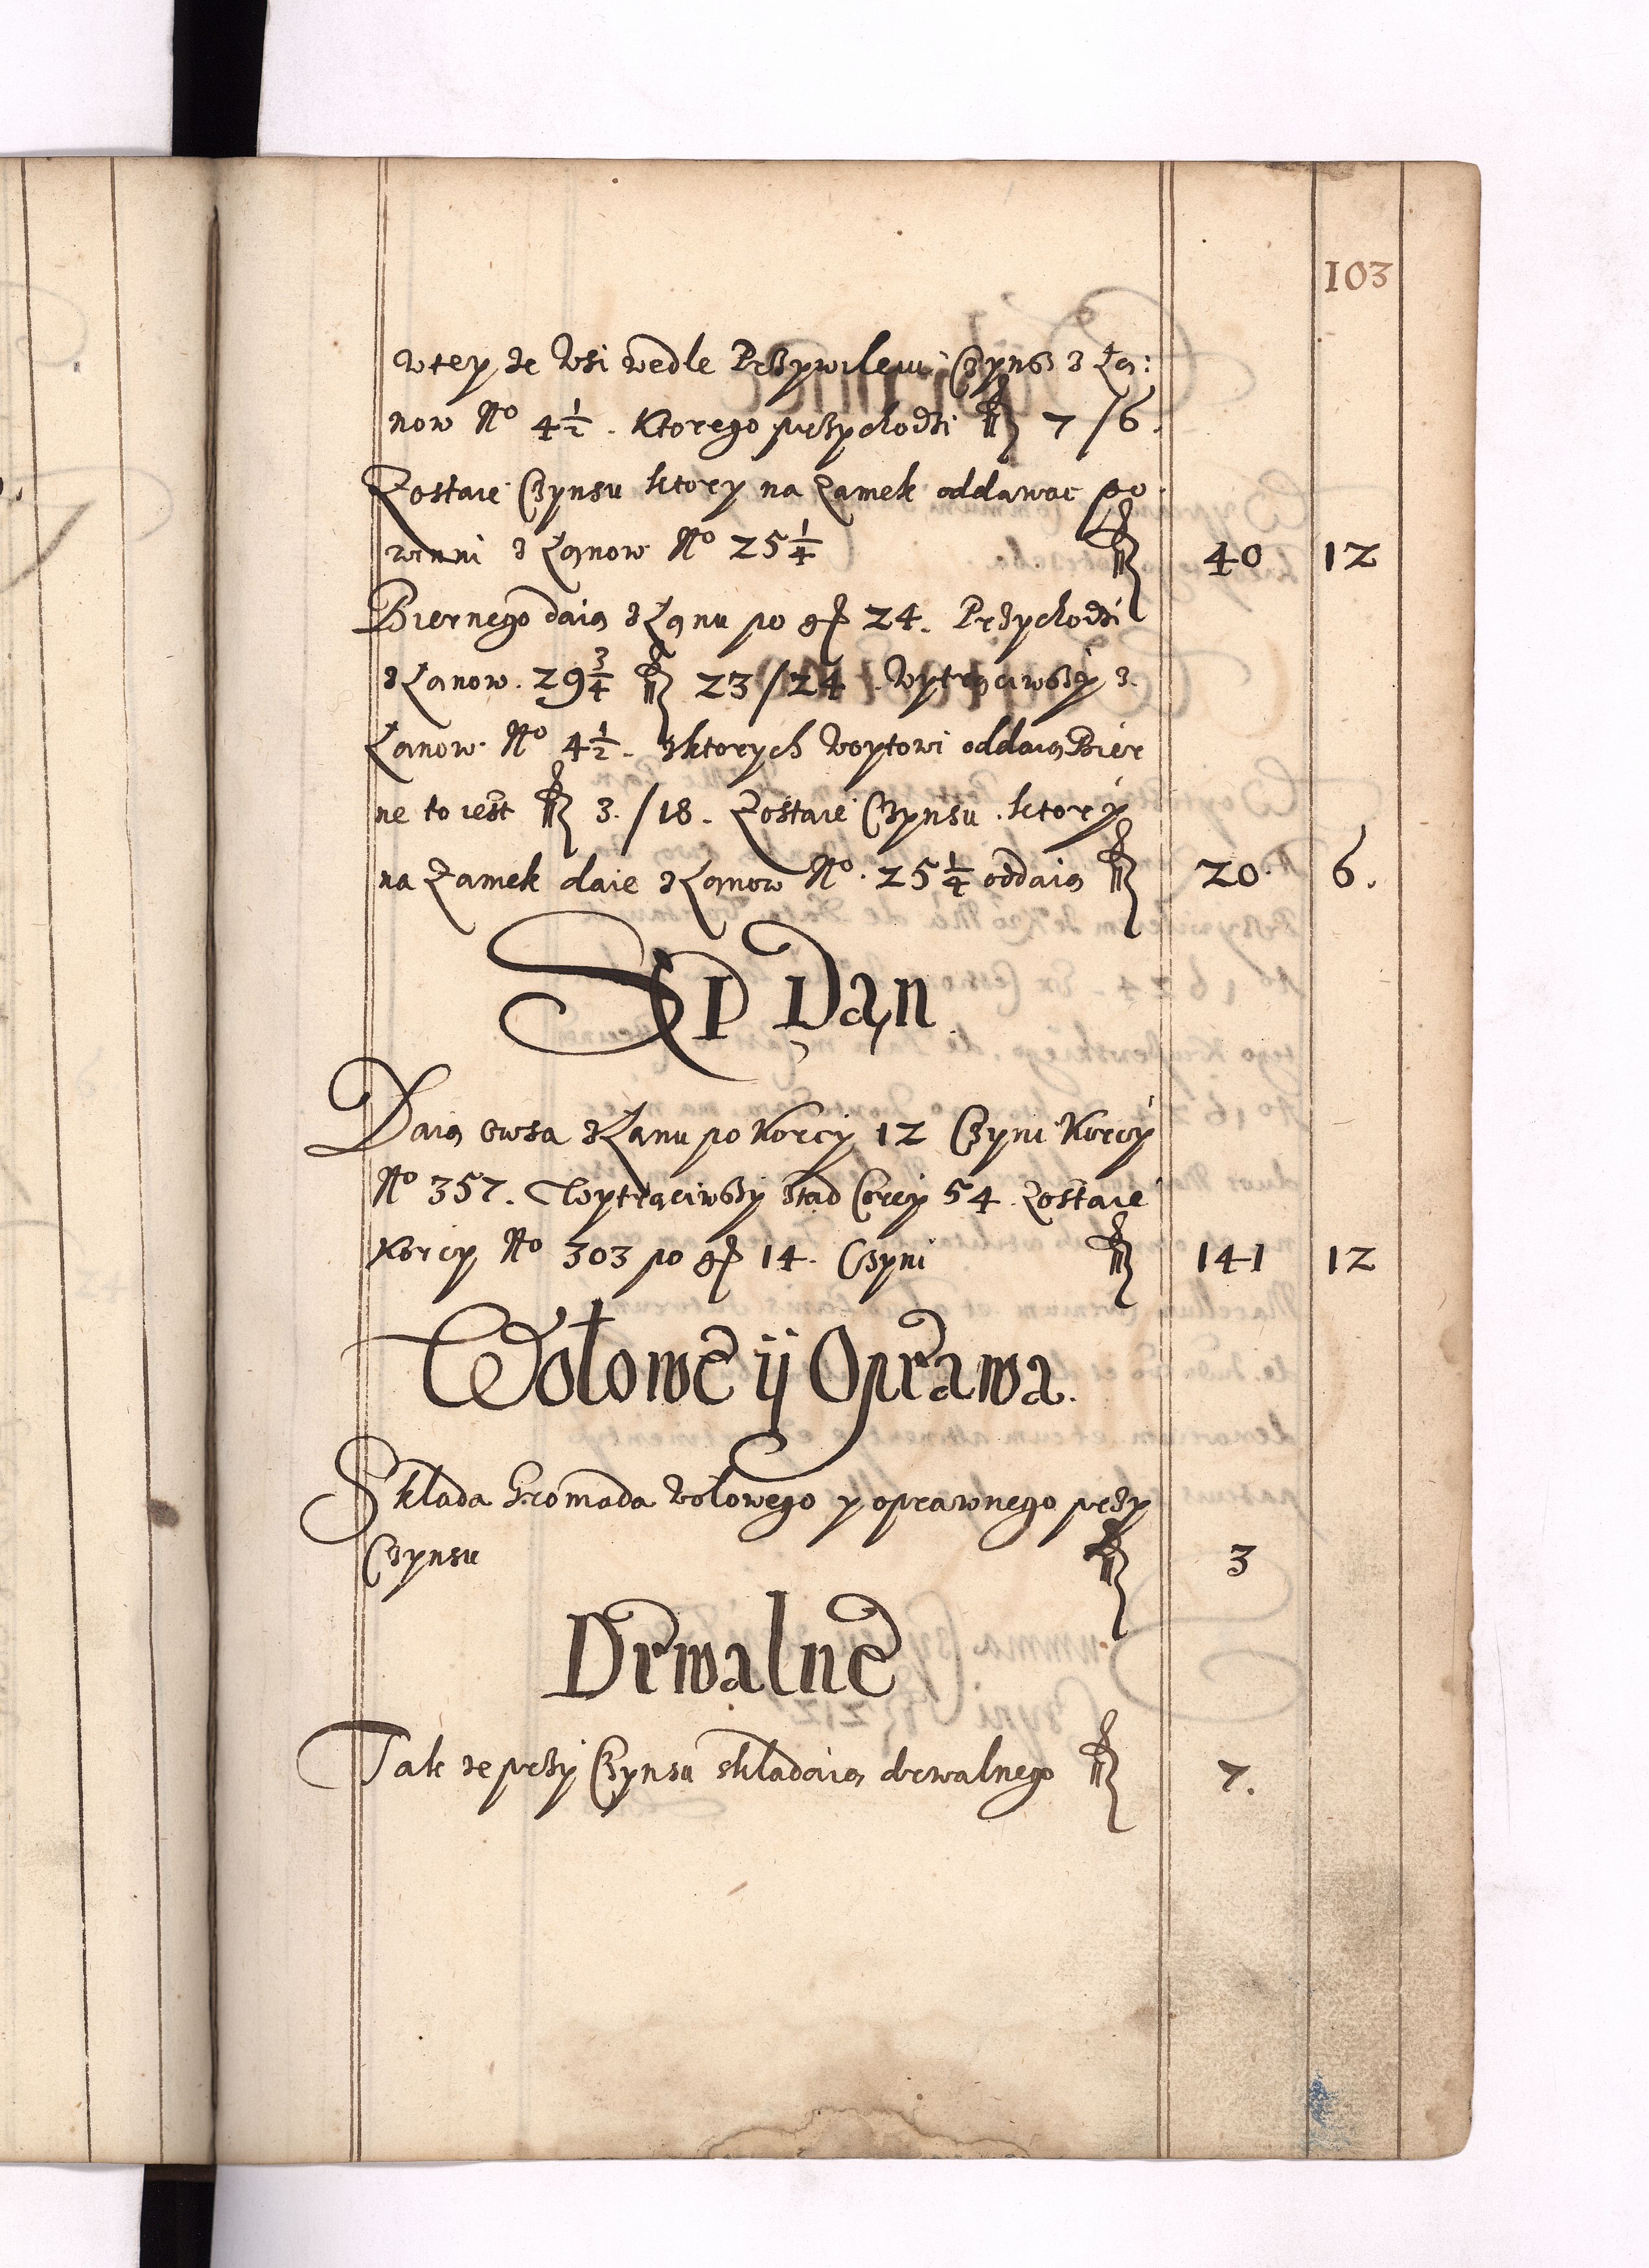 103
wtey ze Wsi wedle Przywileiu Czynsz z Ła:
now No 4 1/2. Ktorego przychodzi fl 7/6.
Zostaie Czynsu ktory na Zamek oddawac po
winni z Łanow No 25 1/4 fl 40 12
Biernego daią z Łanu po gr 24. Przychodzi
z Łanow. 29 3/4 fl 23/24. Wytrąciwszy z
Łanow No 4 1/2. zktorych Woytowi oddaią Bier
ne to iest fl 3./18. Zostaie Czynsu. ktory
na Zamek daie z Łanow No. 25 1/4 oddaią fl 20. 6.
Sęp Dąn
Daią Owsa z Łanu po Korcy 12 Czyni Korcy
No 357. Wytrąciwszy ztąd Corcy 54 Zostaie
Korcy No 303 po gr 14. Czyni fl 141 12
Wołowe ij Oprawa.
Sklada Gromada Wołowego y oprawnego przy
Czynsu fl 3
Drwalne
Tak ze przy Czynsu składaią drwalnego fl 7.